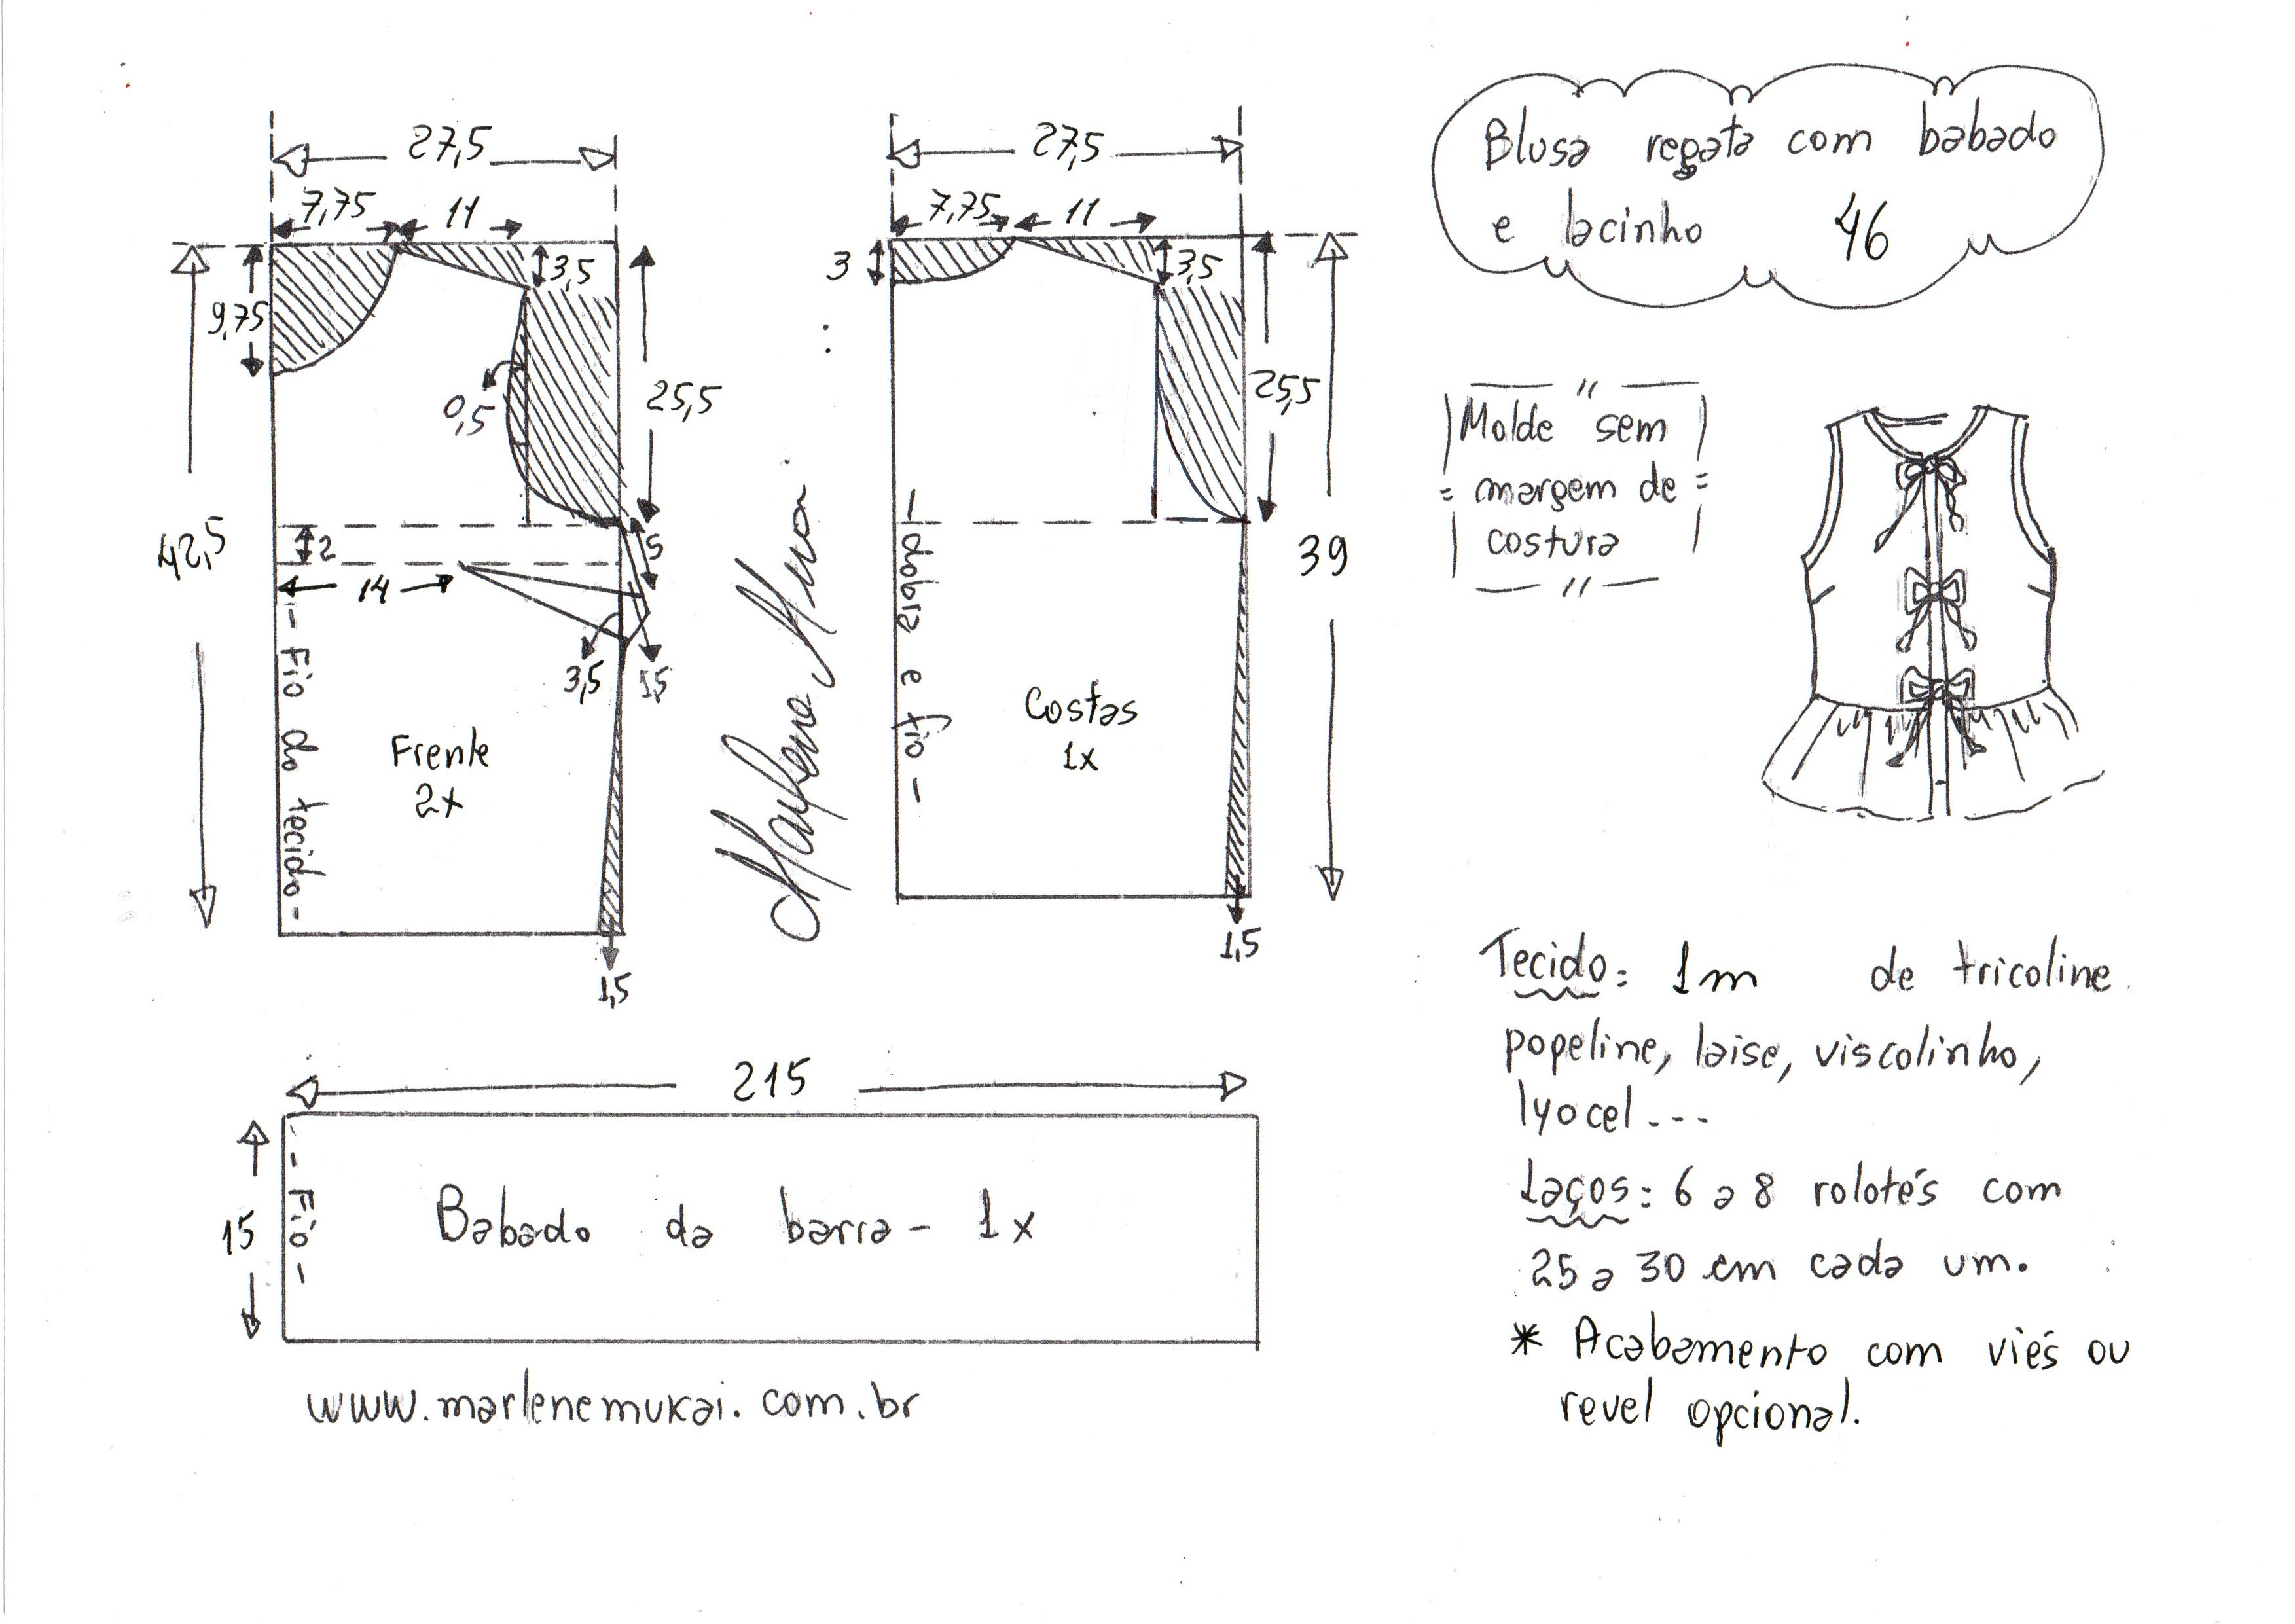 Blusa regata com babado
e lacinho 46
27,5
7,75 11
3,5
9,75
0,5
25,5
42,5
2
5
14
3,5 1,5
- Fio do tecido -
Frente
2x
1,5
27,5
7,75 11
3
3,5
25,5
39
- dobra e fio -
Costas
1x
1,5
Molde sem
margem de
costura
215
15
- Fio -
Babado da barra - 1x
www.marlenemukai.com.br
Tecido: 1m de tricoline
popeline, laise, viscolinho,
lyocel ---
Laços: 6 a 8 rolotés com
25 a 30 cm cada um.
* Acabamento com viés ou
revel opcional.